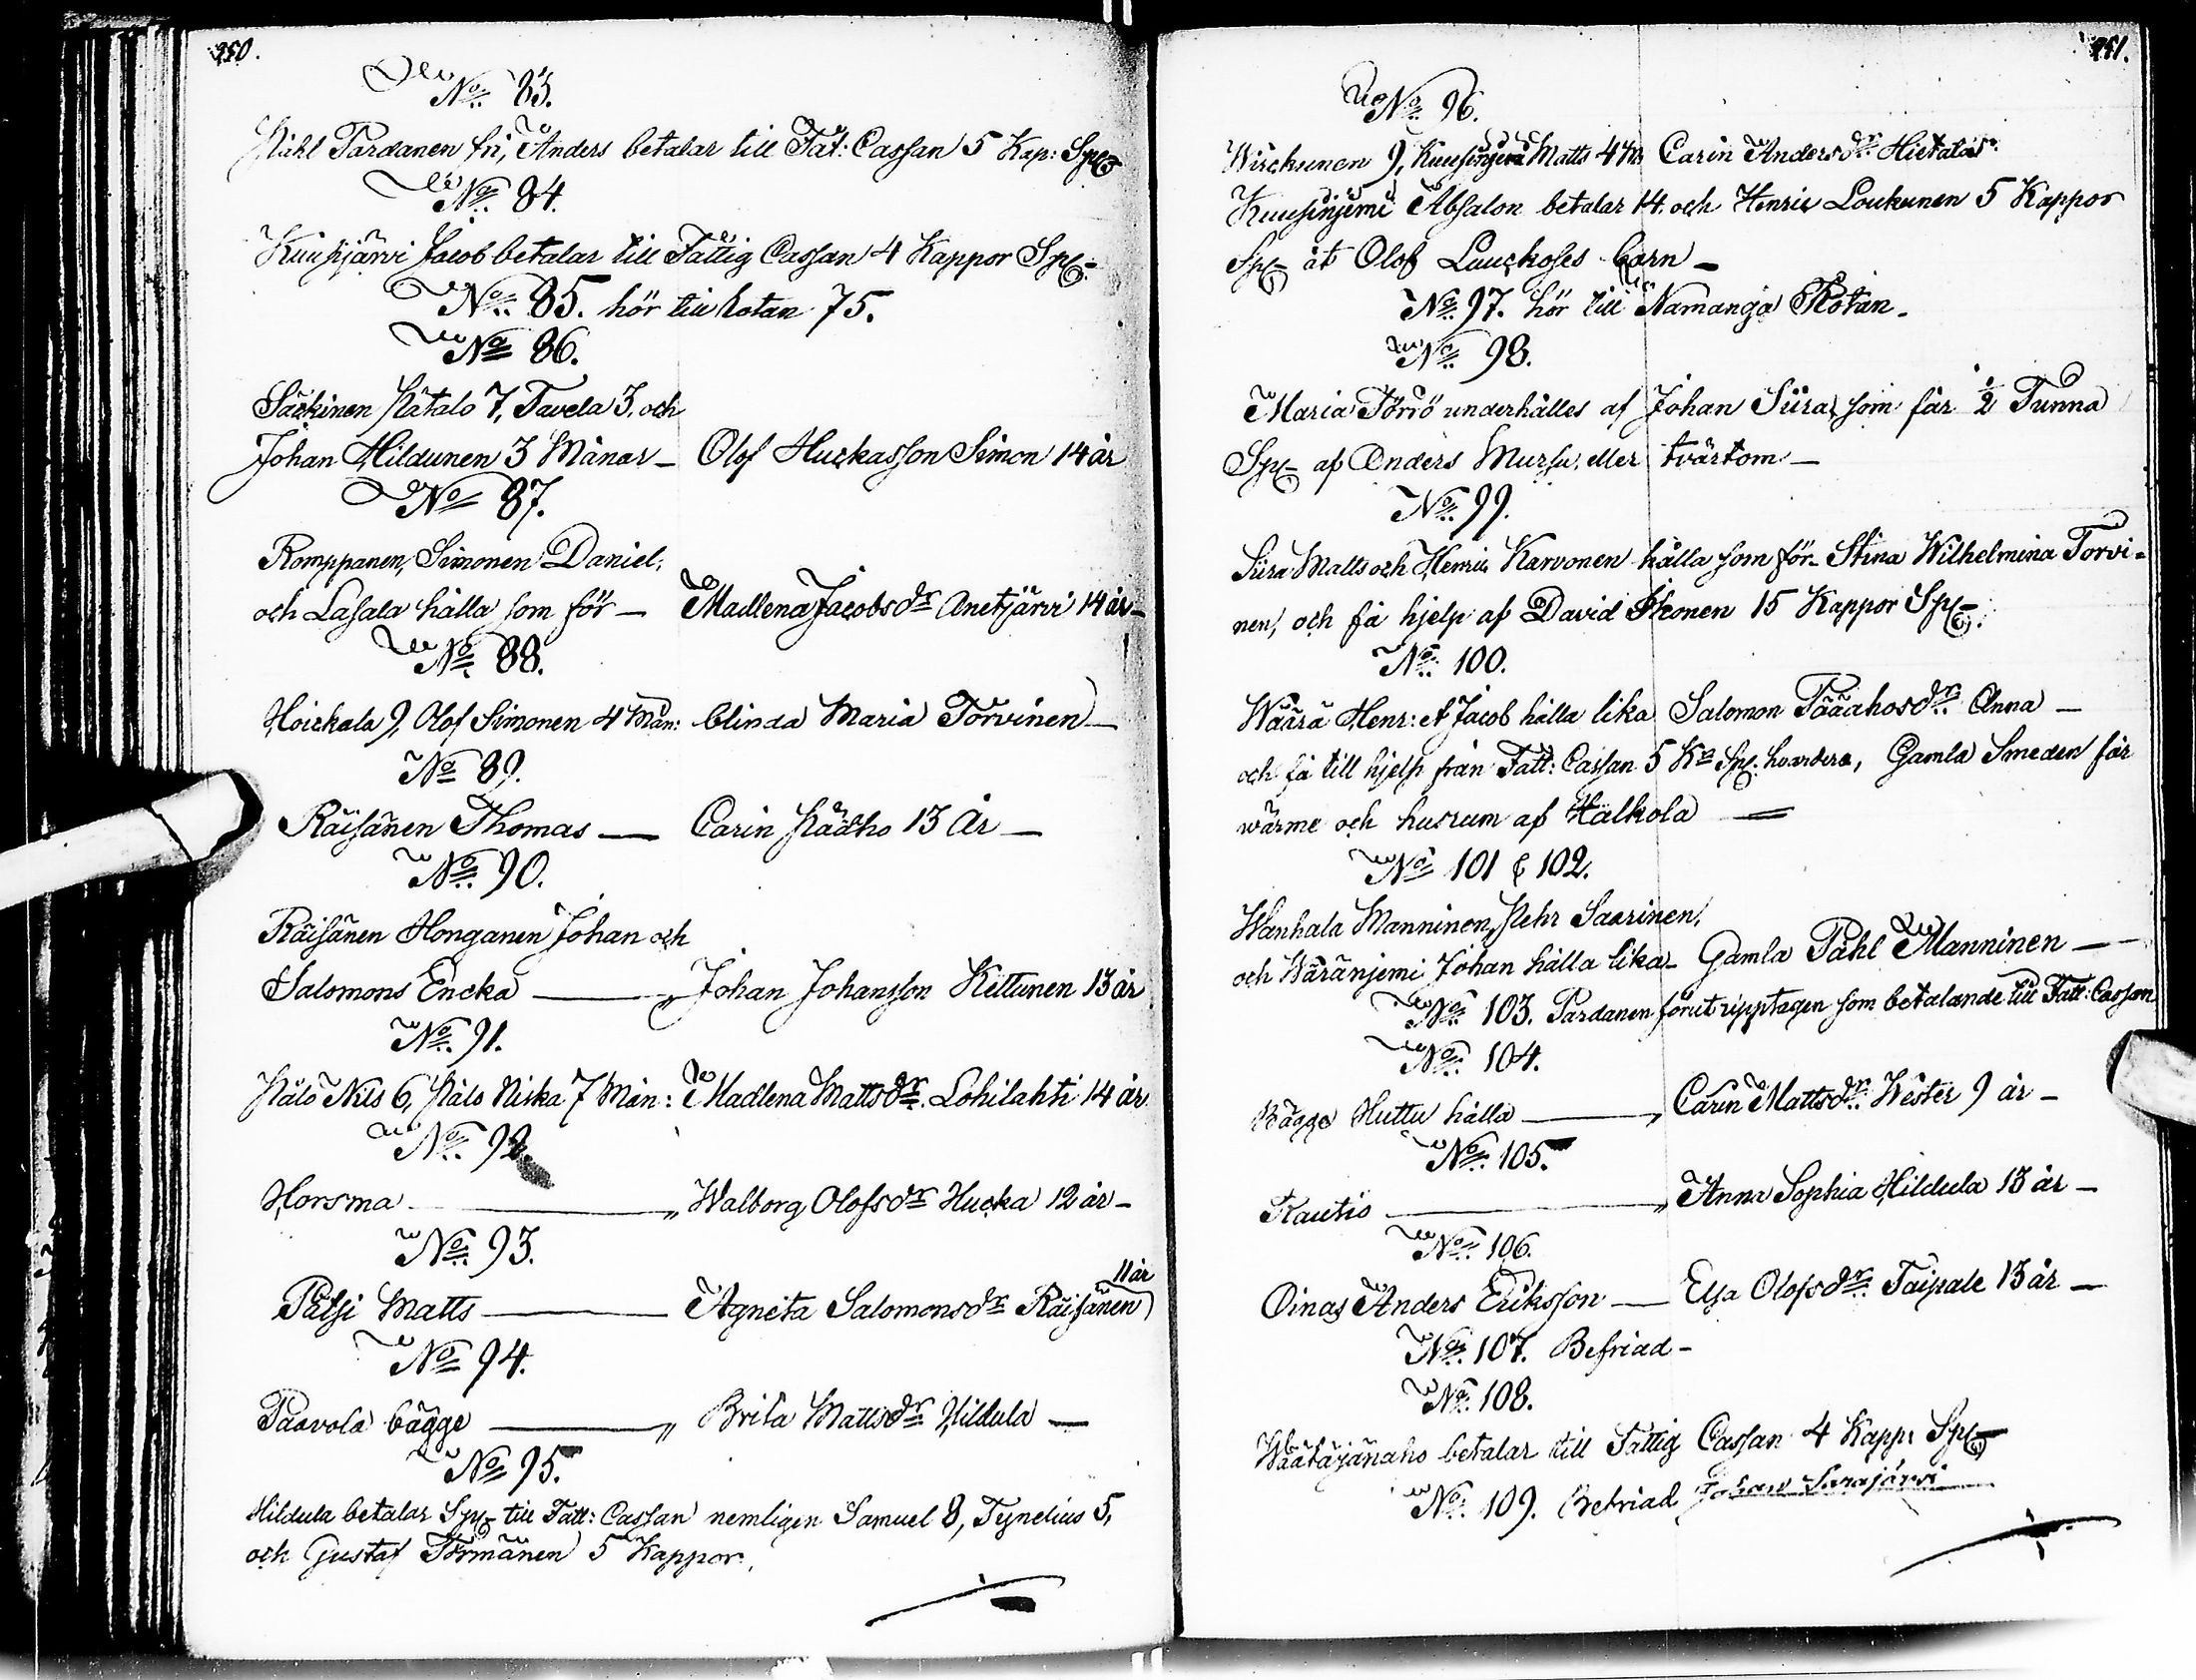 950.
No 83.
Påhl Pardanen fri, Anders betalar till Fat: Cassan 5 Kap: Spl
No 84.
Kuusijärvi Jacob betalar till Fattig Cassan 4 Kappor Spl
No 85. hör till hotan 75.
No 86.
Säckinen Pätalo 7, Tavela 3, och
Johan Hildunen 3 Månar - Olof Huckasson Simon 14 år
No 87.
Romppanen, Simonen Daniel,
och Lasala hålla som för - Madlena Jacobsdr Anetjärvi 14 år -
No 88.
Hoickala 9, Olof Simonen 4 Mån: blinda Maria Torvinen -
No 89.
Räisänen Thomas — Carin Pädho 13 År -
No 90.
Räisänen Honganen Johan och
Salomons Encka — „ Johan Johansson Kettunen 13 år
No 91.
Pålo Nils 6, Pålo Niska 7 Mån: Madlena Mattsdr Lohilahti 14 år
No 92.
Horsma — „ Walborg Olofsdr Hucka 12 år -
No 93.
11 år
Pätsi Matts — Agneta Salomonsdr Räisänen
No 94.
Paavola bägge — „ Brita Mattsdr Hildula —
No 95.
Hildula betalar Spl till Fatt: Cassan nemligen Samuel 8, Tynelius 5,
och Gustaf Törmänen 5 Kappor.
951.
No 96.
Wirckunen 9, Kuusinjemi Matts 4 M Carin Andersdr Hietala
Kuusinjemi Absalon betalar 14. och Henric Loukunen 5 Kappor
Spl åt Olof Lauckoses barn -
No 97. hör till Namanga Rotan.
No 98.
Maria Törrö underhålles af Johan Siira, som får ½ Tunna
Spl af Anders Mursu, eller tvärtom -
No 99.
Siira Matts och Henric Karvonen hålla som för - Stina Wilhelmina Torvi-
nen, och få hjelp af David Ikonen 15 Kappor Spl
No 100.
Wäärä Henr: et Jacob hålla lika Salomon Pääahosdr Anna -
och få till hjelp från Fatt: Cassan 5 Ka Spl: hvardera, Gamla Smeden får
wärme och husrum af Hälkola
No 101 & 102.
Wanhala Manninen, Pehr Saarinen,
och Wäränjemi Johan hålla lika - Gamla Påhl Manninen -
No 103. Pardanen förut upptagen som betalande till Fatt: Cassan
No 104.
Bägge Huttu hålla — „ Carin Mattsdr Wester 9 år -
No 105.
Kautio — „ Anna Sophia Hildula 13 år -
No 106.
Oinas Anders Eriksson — Elsa Olofsdr Taipale 13 år -
No 107. Befriad -
No 108.
Wäätäjänaho betalar till Fattig Cassan 4 Kapp: Spl
No 109. Befriad Johan Sarajärvi